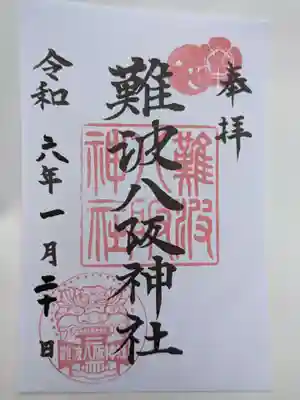 奉拝
難波八阪神社
令和六年一月二十日
難波八阪神社
難波八阪神社